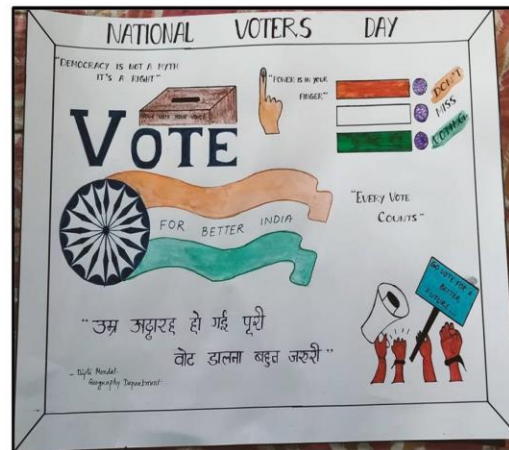 NATIONAL VOTERS DAY
"DEMOCRACY IS NOT A MYTH
IT'S A RIGHT"
YOUR VOTE YOUR VOICE
VOTE
"POWER IS IN YOUR
FINGER"
DON'T
MISS
VOTING
FOR BETTER INDIA
"EVERY VOTE
COUNTS"
GO VOTE FOR A
BETTER
FUTURE...
"उम्र अट्ठारह हो गई पूरी
वोट डालना बहुत जरुरी"
- Dipti Mondal
Geography Department